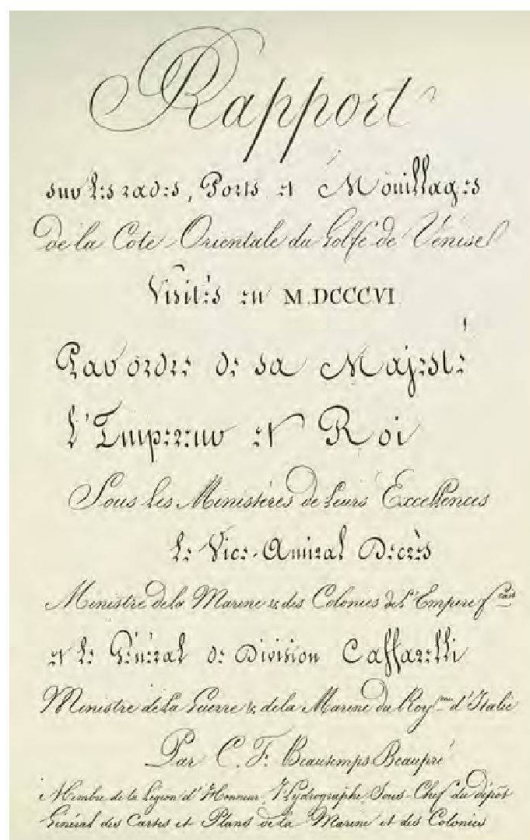 Rapport
sur les rades, Ports et Mouillages
de la Cote Orientale du Golfe de Venise
Visités en M.DCCCVI
Par ordre de sa Majesté
l'Empereur et Roi
Sous les Ministères de leurs Excellences
le Vice-Amiral Decrès
Ministre de la Marine & des Colonies de l'Empire fçais
et le Général de Division Caffarelli
Ministre de la Guerre & de la Marine du Roy.me d'Italie
Par C. F. Beautemps Beaupré
Membre de la Légion d'Honneur, Hydrographe, Sous-Chef du dépôt
Général des Cartes et Plans de la Marine et des Colonies